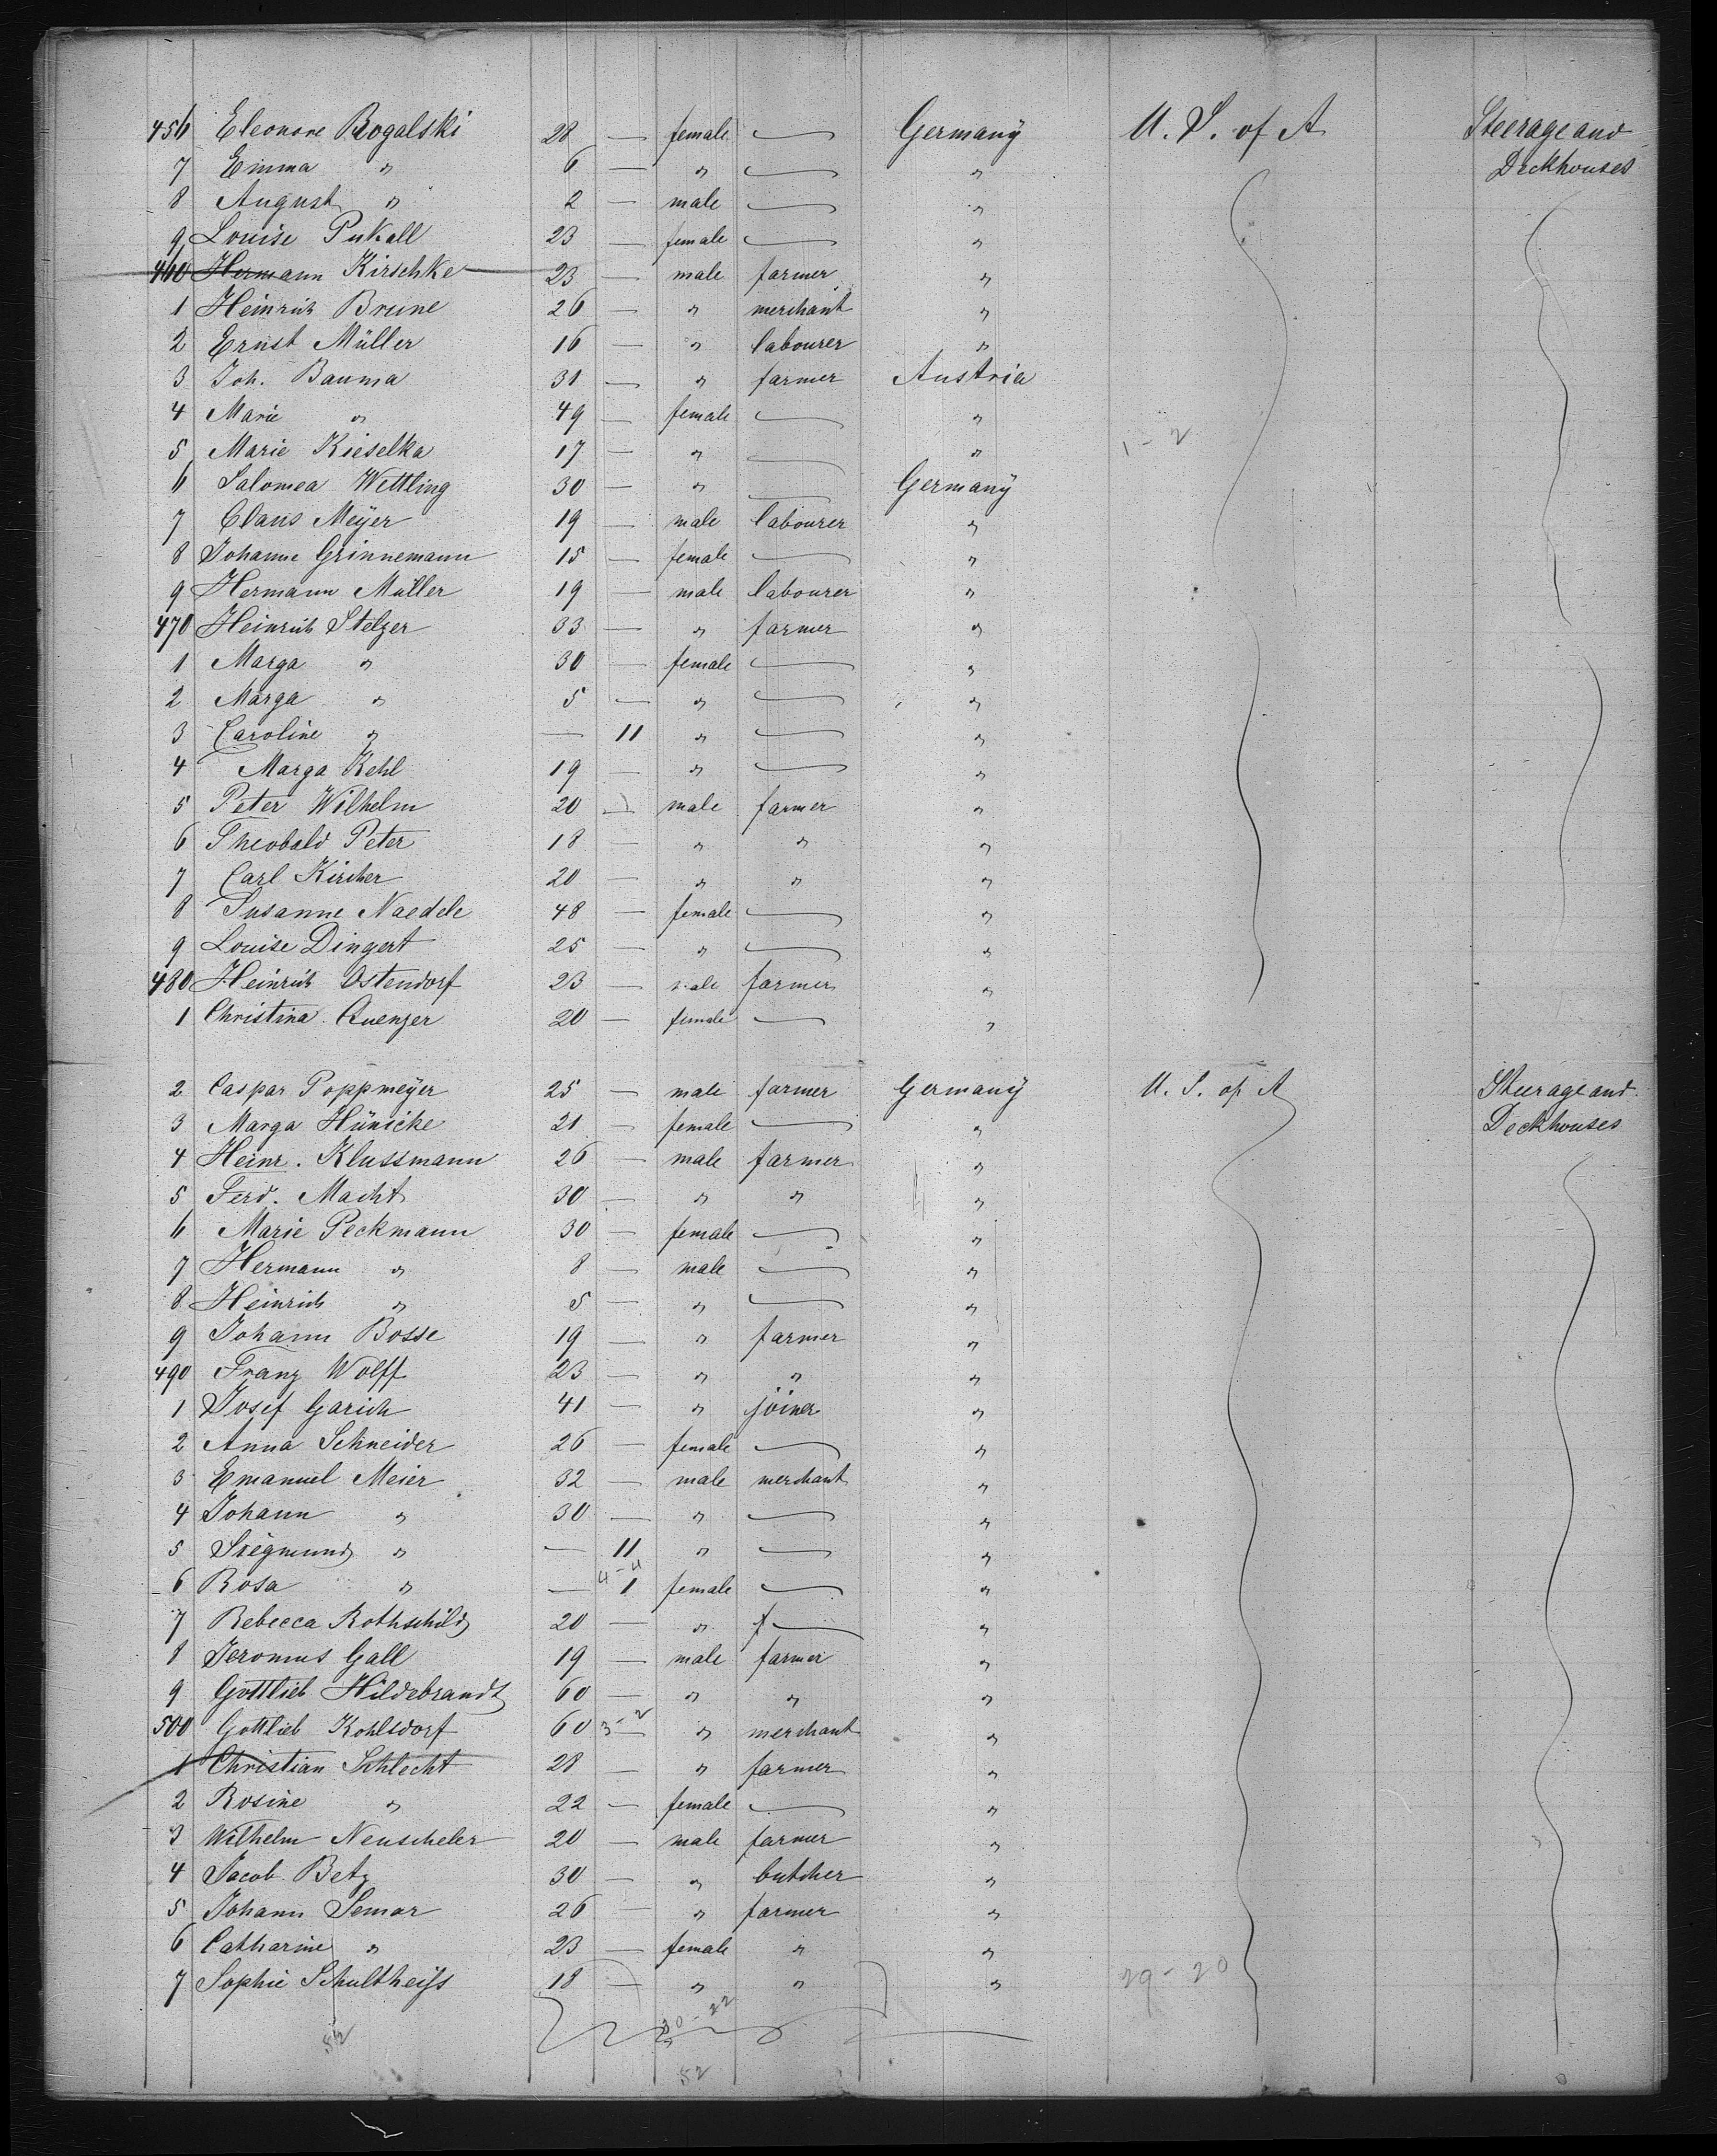 456 Eleonore Rogalski 28 — female — Germany U. S. of A Steerage and
7 Emma " 6 — " — " Deckhouses
8 August " 2 — male — "
9 Louise Pukall 23 — female — "
460 Hermann Kirschke 23 — male farmer "
1 Heinrich Brune 26 — " merchant "
2 Ernst Müller 16 — " labourer "
3 Joh. Bauma 31 — " farmer Austria
4 Marie " 49 — female — "
5 Marie Kieselka 17 — " — " 1-2
6 Salomea Wettling 30 — " — Germany
7 Claus Meÿer 19 — male labourer "
8 Johanne Grinnemann 15 — female — "
9 Hermann Müller 19 — male labourer "
470 Heinrich Stelzer 33 — " farmer "
1 Marga " 30 — female — "
2 Marga " 5 — " — "
3 Caroline " — 11 " — "
4 Marga Kehl 19 — " — "
5 Peter Wilhelm 20 — male farmer "
6 Theobald Peter 18 — " " "
7 Carl Kircher 20 — " " "
8 Susanne Naedele 48 — female — "
9 Louise Dingert 25 — " — "
480 Heinrich Ostendorf 23 — male farmer "
1 Christina Quenzer 20 — female — "
2 Caspar Poppmeÿer 25 — male farmer Germany U. S. of A Steerage and
3 Marga Hünicke 21 — female — " Deckhouses
4 Heinr. Klussmann 26 — male farmer "
5 Ferd. Macht 30 — " " "
6 Marie Peckmann 30 — female — "
7 Hermann " 8 — male — "
8 Heinrich " 5 — " — "
9 Johann Bosse 19 — " farmer "
490 Franz Wolff 23 — " " "
1 Josef Garich 41 — " joiner "
2 Anna Schneider 26 — female — "
3 Emanuel Meier 32 — male merchant "
4 Johann " 30 — " — "
5 Siegmund " — 11 " — "
4-4
6 Rosa " — 1 female — "
7 Rebecca Rothschild 20 — " — "
8 Jeronius Gall 19 — male farmer "
9 Gottlieb Hildebrandt 60 — " " "
500 Gottlieb Kohlsdorf 60 3-2 " merchant "
1 Christian Schlecht 28 — " farmer "
2 Rosine " 22 — female — "
3 Wilhelm Neuscheler 20 — male farmer "
4 Jacob Betz 30 — " butcher "
5 Johann Semar 26 — " farmer "
6 Catharine " 23 — female " "
7 Sophie Schultheiss 18 — " " " 29-20
52 30-22
52